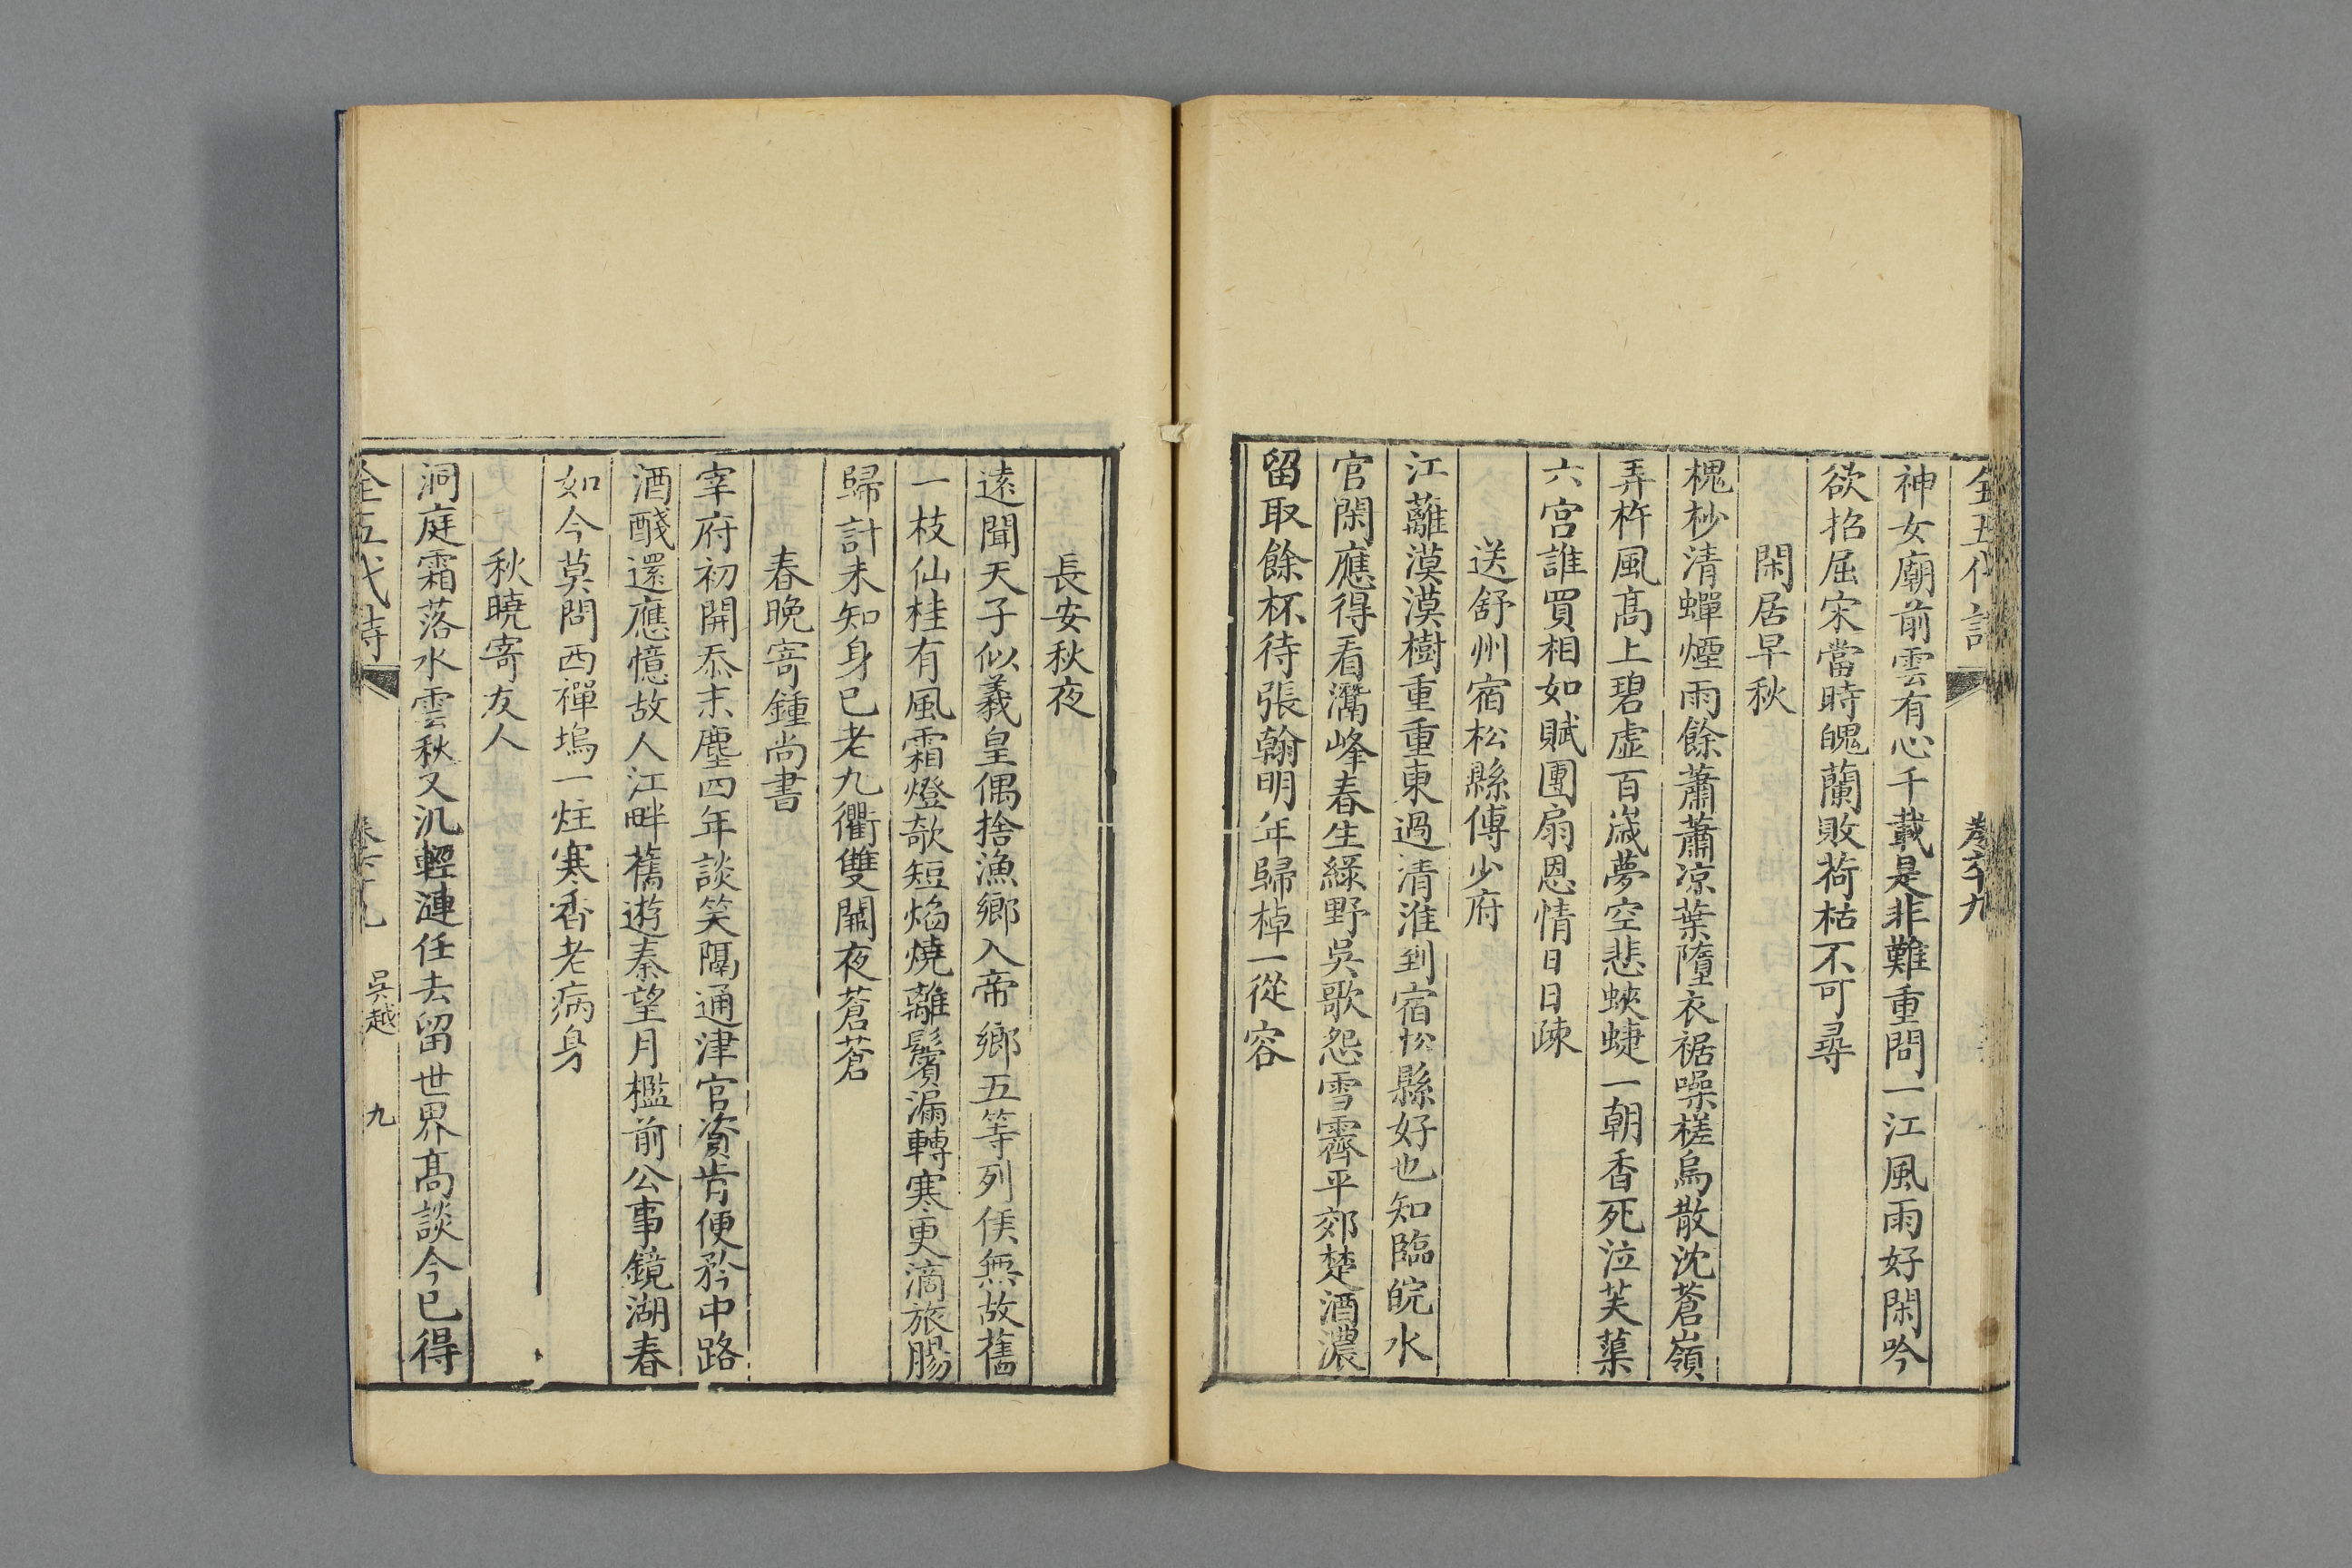 全五代詩 卷六十九
神女廟前雲有心千載是非難重問一江風雨好閑吟
欲招屈宋當時魄蘭敗荷枯不可尋
閑居早秋
槐杪清蟬煙雨餘蕭蕭凉葉墮衣裾噪槎烏散沈蒼嶺
弄杵風髙上碧虛百歲夢空悲蛺蜨一朝香死泣芙蕖
六宮誰買相如賦團扇恩情日日疎
送舒州宿松縣傅少府
江蘺漠漠樹重重東過清淮到宿松縣好也知臨皖水
官閑應得看灊峰春生綠野吳歌怨雪霽平郊楚酒濃
留取餘杯待張翰明年歸棹一從容
長安秋夜
遠聞天子似羲皇偶捨漁鄉入帝鄉五等列侯無故舊
一枝仙桂有風霜燈欹短焰燒離鬢漏轉寒更滴旅腸
歸計未知身已老九衢雙闕夜蒼蒼
春晚寄鍾尚書
宰府初開忝末塵四年談笑隔通津官資肯便矜中路
酒醆還應憶故人江畔舊遊秦望月檻前公事鏡湖春
如今莫問西禪塢一炷寒香老病身
秋曉寄友人
洞庭霜落水雲秋又汎輕漣任去留世界髙談今已得
全五代詩 卷六十九 吳越 九